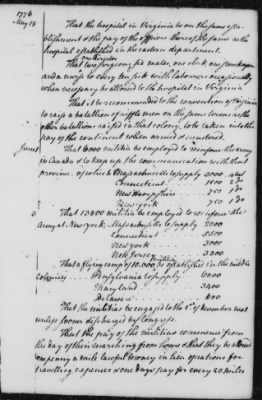 1776
May 18
That the hospital in Virginia be on the same esta-
blishment & the pay of the officers there of the same as the
hospital established in the eastern department.
That two surgeons, six mates, one clerk, one
and a nurse to every ten sick with labourers occasionally
when necessary be allowed to the hospital in Virginia
That it be recommended to the convention of Virginia
to raise a batallion of riffle men on the same terms as the
other batallions raised in that colony, to be taken into the
pay of the continent when armed & mustered.
June 1
That 6000 militia be employed to reinforce the army
in Canada & to keep up the communication with that
province. of which Massachusetts supply 3000
Connecticut 1500
New Hampshire 750 do
New York 750 do
3
That 13800 militia be employed to reinforce the
Army at New York. Massachusetts to supply 2000
Connecticut 5500
New York 3000
New Jersey 3300
That a flying camp of 10,000 be established in the middle
colonies. Pensylvania to supply 6000
Maryland 3400
Delaware 600
That the militia be engaged to the 1st of December next
unless sooner discharged by Congress.
That the pay of the militia commence from
the day of their marching from home & that they be allowed
one penny a mile lawful money in lieu of rations for
travelling expences & one days pay for every 20 miles